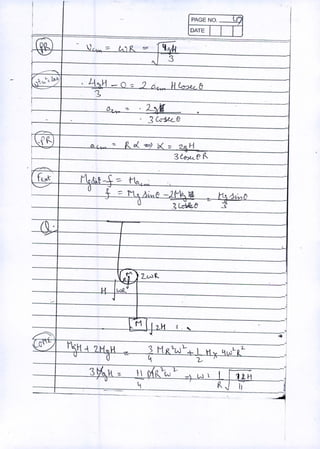 PAGE NO. 49
DATE
PR
Vcm = ωR = √4gH/3
4gH/3 - 0 = 2 acm H cosecθ
acm = 2g/3 cosecθ
PR
acm = Rα ⇒ α = 2gH/3 cosecθ R
Fext
Mg sinθ - f = Macm
f = Mg sinθ - 2Mg/3 cosecθ = Mg sinθ/3
Q.
2ωR
H ωR
M 2H
COME
MgH + 2MgH = 3/4 MR²ω² + 1/2 M × 4ω²R²
3MgH = 11/4 MR²ω² ⇒ ω = 1/R √12H/11